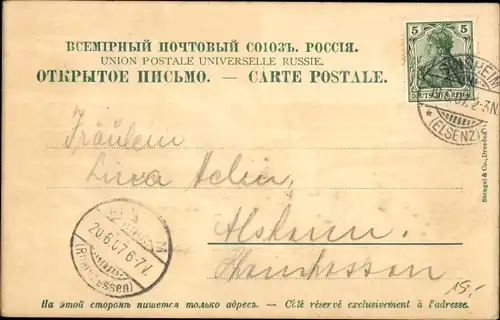 ВСЕМІРНЫЙ ПОЧТОВЫЙ СОЮЗЪ. РОССІЯ.
UNION POSTALE UNIVERSELLE RUSSIE.
ОТКРЫТОЕ ПИСЬМО. — CARTE POSTALE.
5 5
DEUTSCHES REICH
SINSHEIM
2-3N
* (ELSENZ)
Stengel & Co., Dresden
Fräulein
Alsheim
Rheinhessen
20.6.07. 6-7V.
(Rheinhessen)
15.-
На этой сторонѣ пишется только адресъ. — Côté réservé exclusivement à l'adresse.